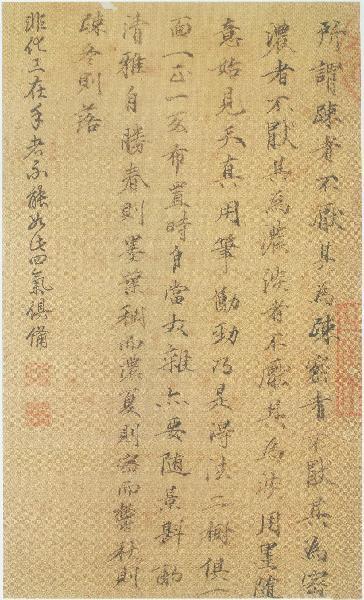 所謂疎者不厭其為疎密者不厭其為密
濃者不厭其為濃淡者不厭其為淡用墨隨
意始見天真用筆動乃是得法二樹俱一
面一正一布置時自當夾雜亦要隨景斟酌
清雅自勝春則墨葉而濃夏則密而鬱秋則
疎冬則落
非化工在手者不能如此四氣俱備